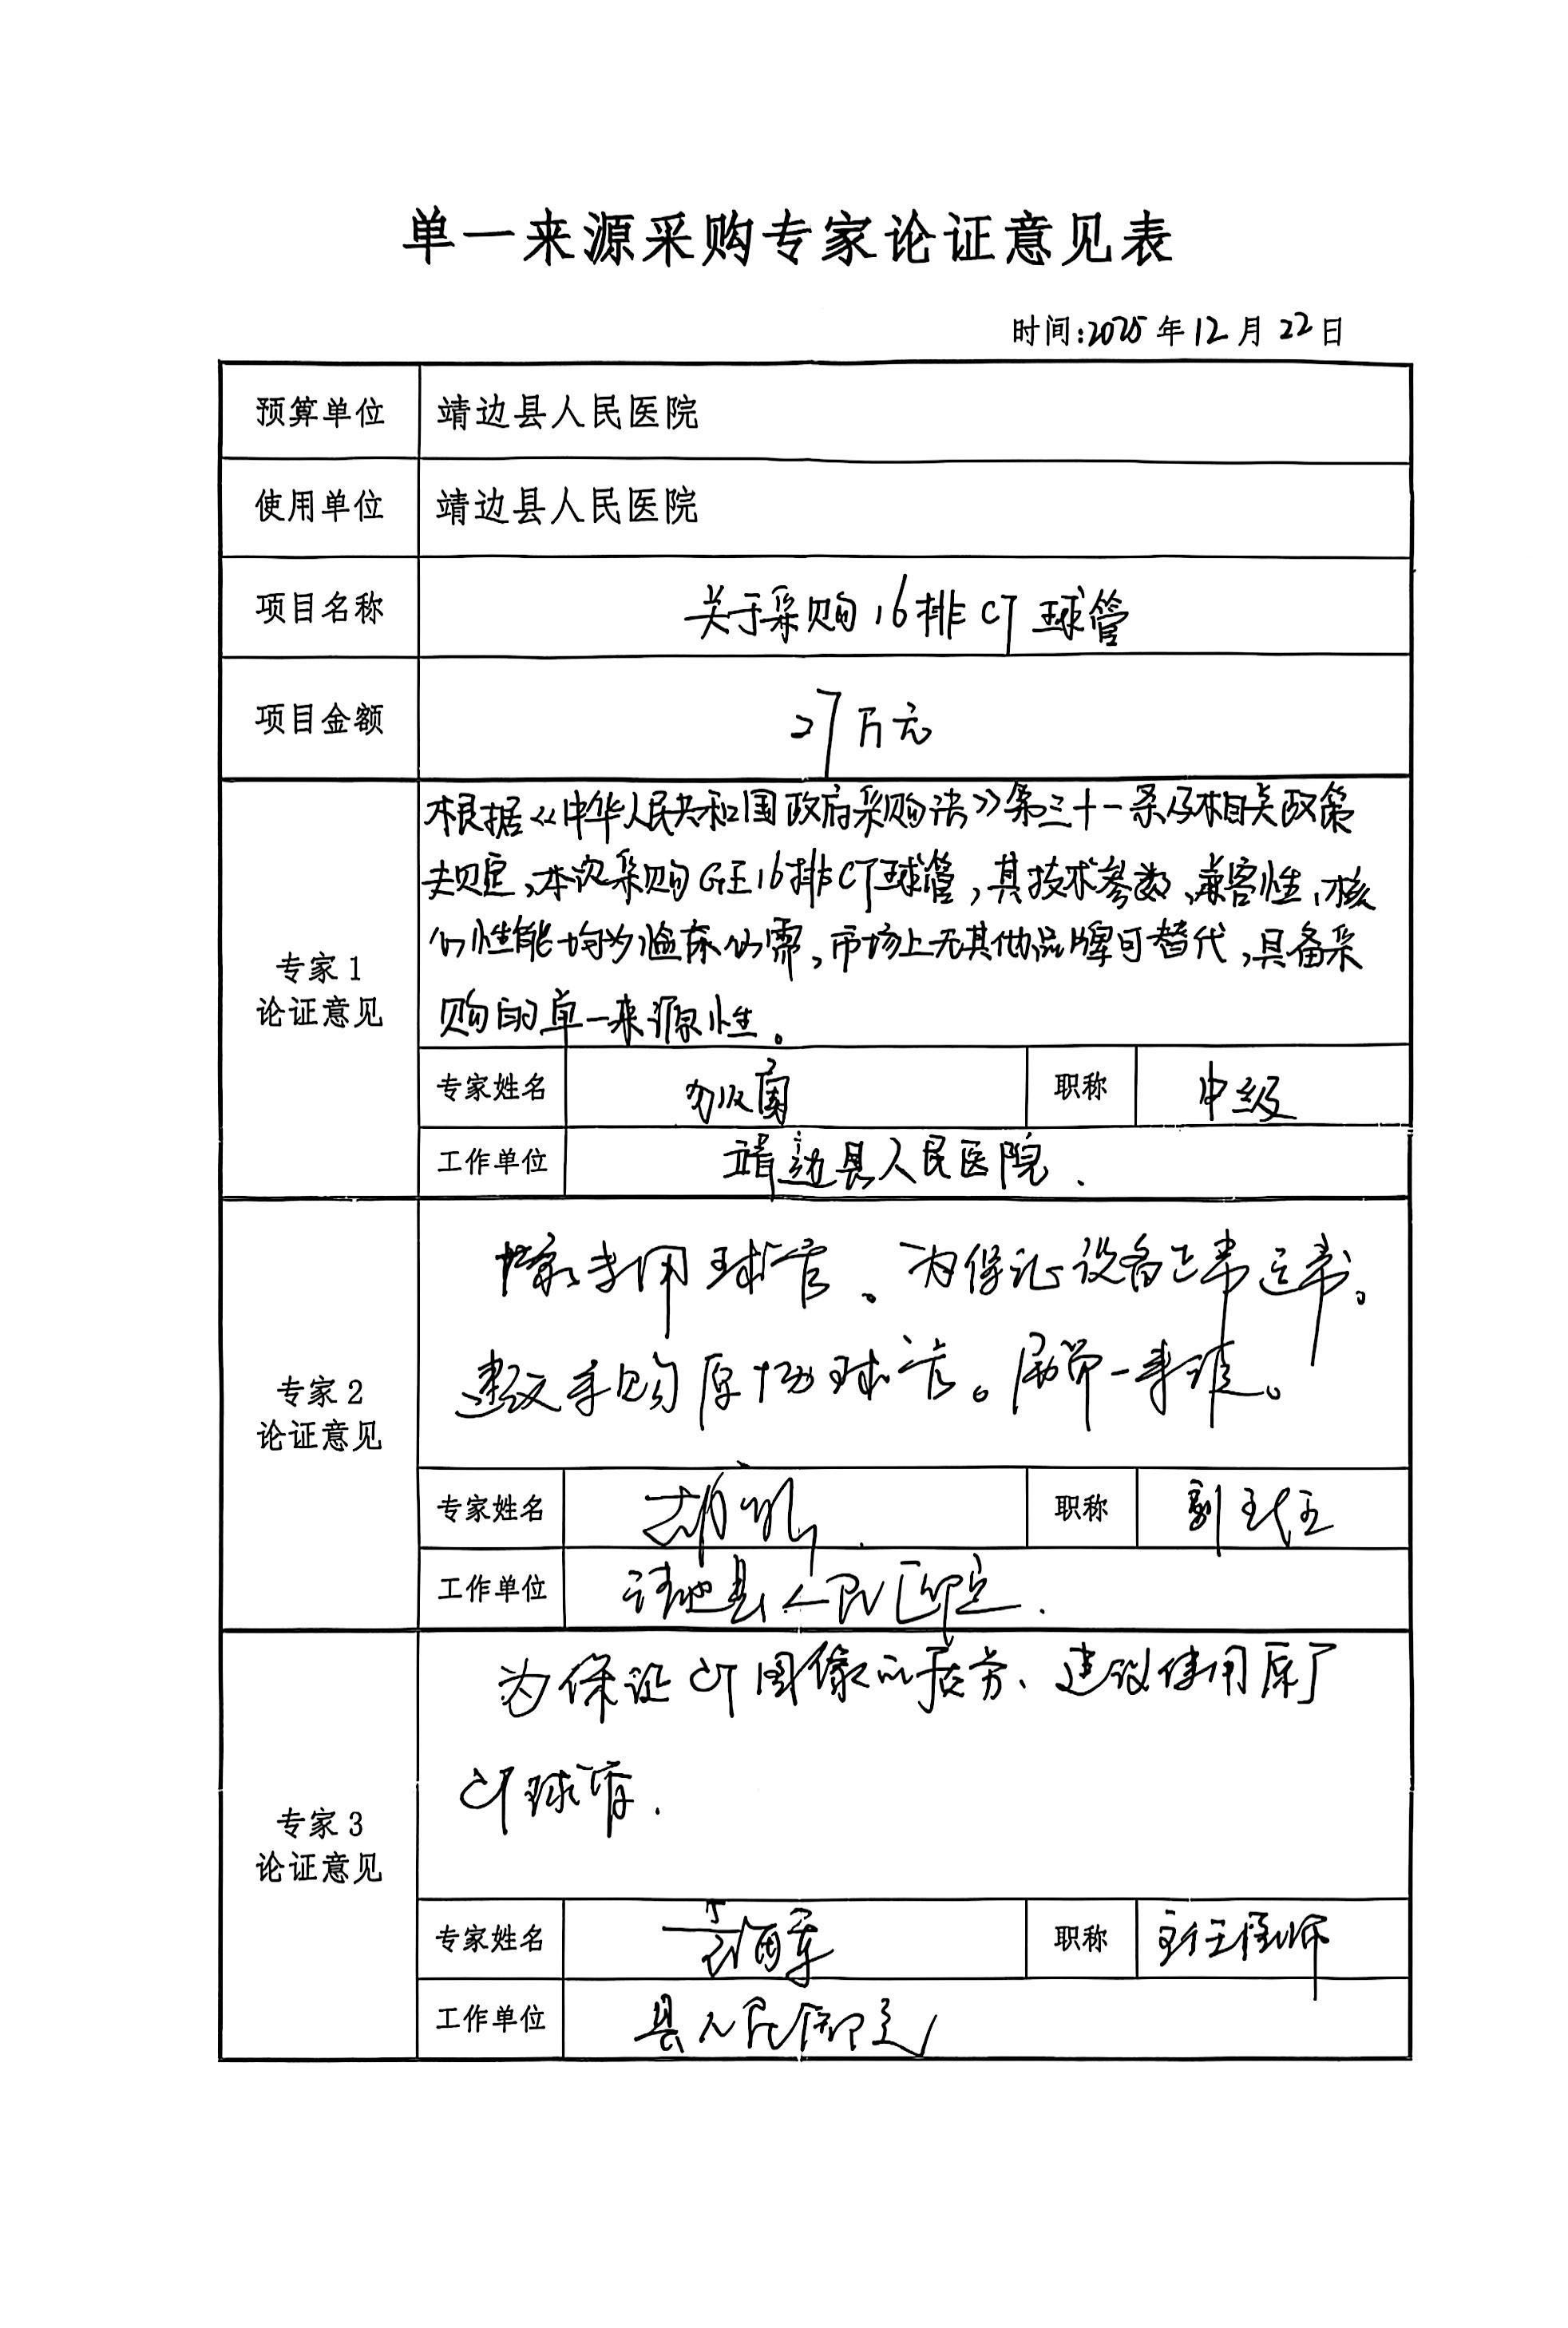 单一来源采购专家论证意见表
时间:2025年12月22日
预算单位 靖边县人民医院
使用单位 靖边县人民医院
项目名称 关于采购16排CT球管
项目金额 27万元
根据《中华人民共和国政府采购法》第三十一条及相关政策
规定,本次采购GE16排CT球管,其技术参数、兼容性、核
心性能均为临床必需,市场上无其他品牌可替代,具备采
购的单一来源性。
专家1
论证意见
专家姓名 职称 中级
工作单位 靖边县人民医院.
专用球管、为保证设备正常运转。
建议采购原厂球管。属单一来源。
专家2
论证意见
专家姓名 胡 职称 副主任
工作单位 靖边县人民医院.
为保证CT图像的质量、建议使用原厂
CT球管.
专家3
论证意见
专家姓名 职称 主任医师
工作单位 县人民医院